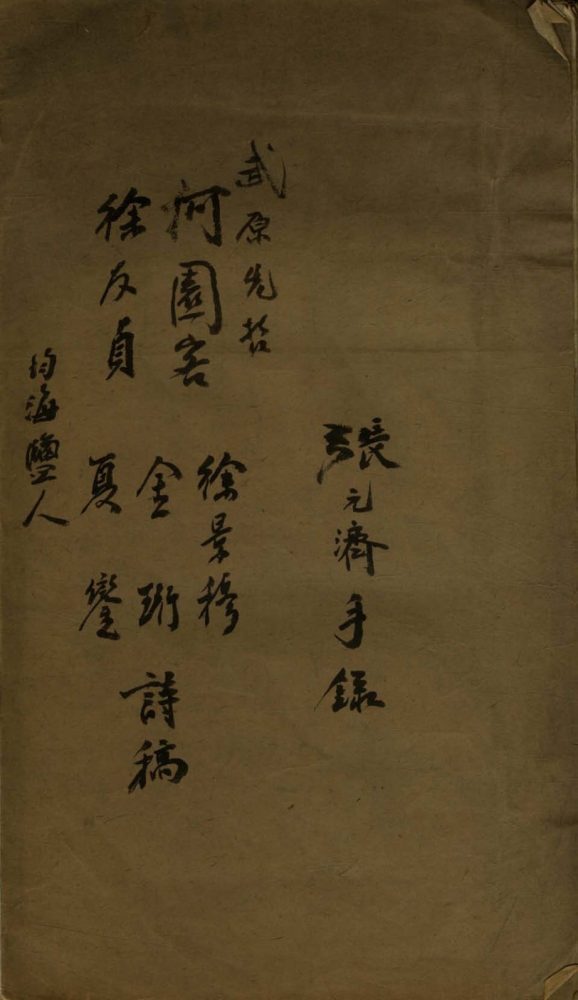 張元濟手錄
武原先哲
何園客
徐友貞
徐景穆
金珩
夏鑾
詩稿
均海鹽人